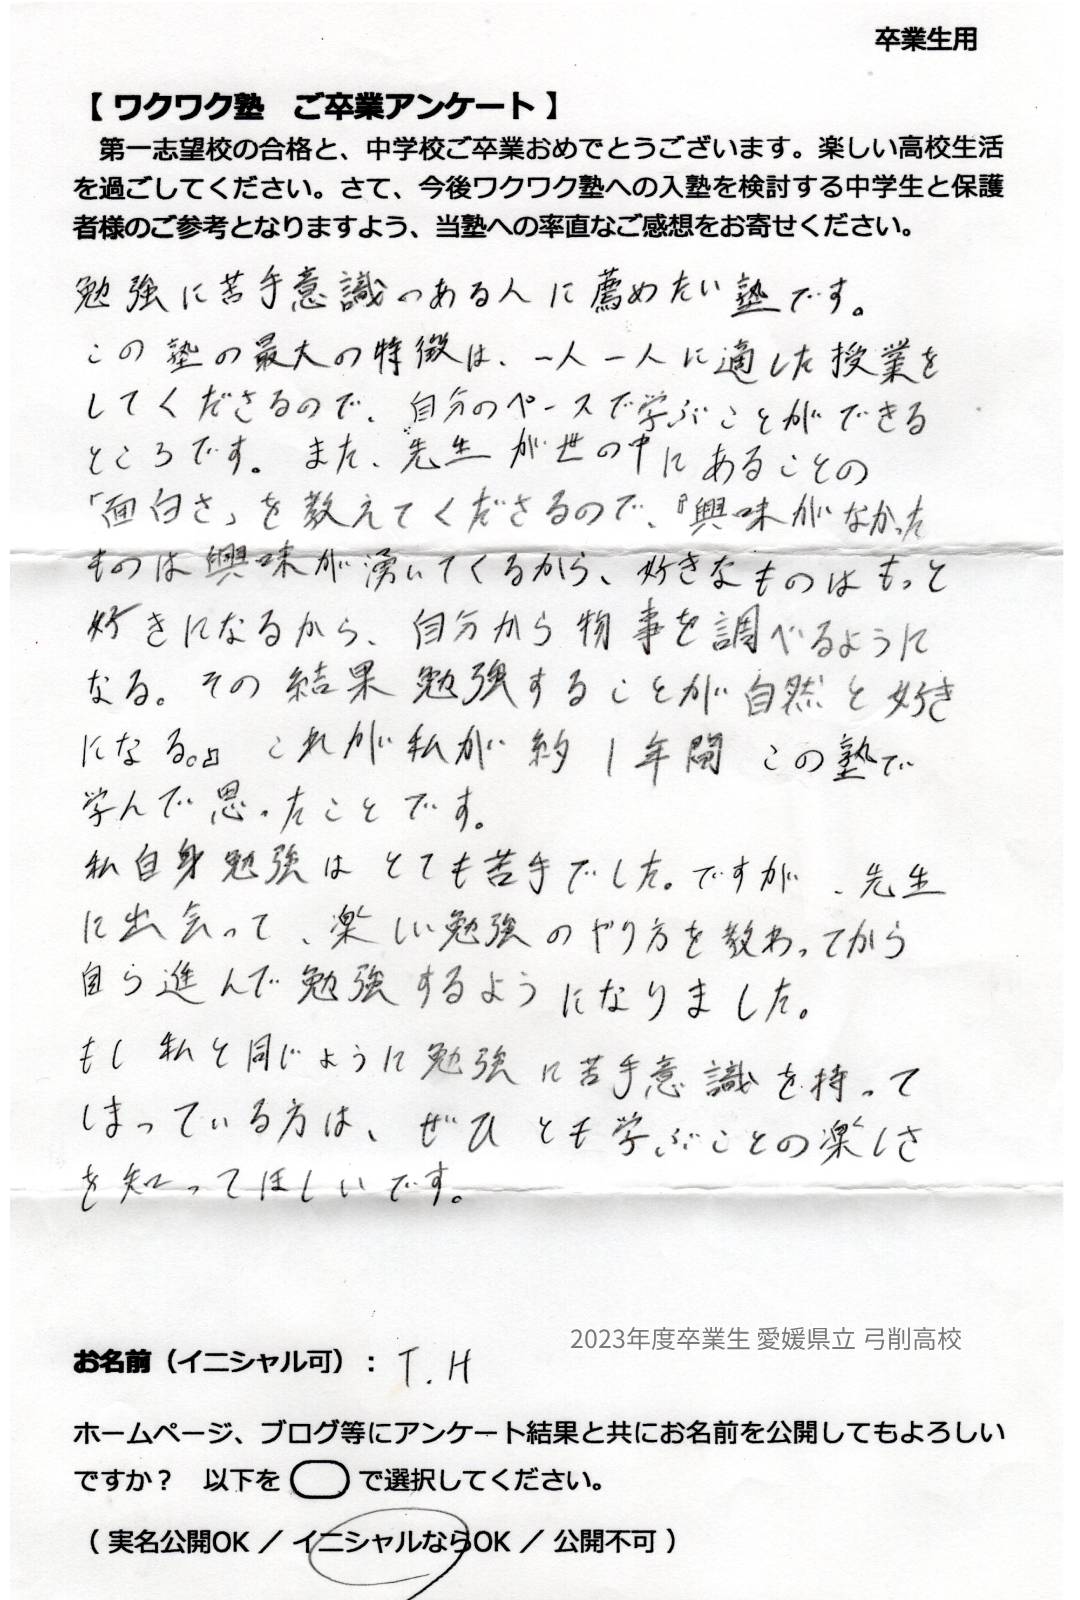 卒業生用
【 ワクワク塾　ご卒業アンケート 】
　第一志望校の合格と、中学校ご卒業おめでとうございます。楽しい高校生活
を過ごしてください。さて、今後ワクワク塾への入塾を検討する中学生と保護
者様のご参考となりますよう、当塾への率直なご感想をお寄せください。
勉強に苦手意識のある人に薦めたい塾です。
この塾の最大の特徴は、一人一人に適した授業を
してくださるので、自分のペースで学ぶことができる
ところです。また、先生が世の中にあることの
「面白さ」を教えてくださるので、『興味がなかった
ものは興味が湧いてくるから、好きなものはもっと
好きになるから、自分から物事を調べるように
なる。その結果勉強することが自然と好き
になる。』これが私が約1年間この塾で
学んで思ったことです。
私自身勉強はとても苦手でした。ですが、先生
に出会って、楽しい勉強のやり方を教わってから
自ら進んで勉強するようになりました。
もし私と同じように勉強に苦手意識を持って
しまっている方は、ぜひとも学ぶことの楽しさ
を知ってほしいです。
2023年度卒業生 愛媛県立 弓削高校
お名前（イニシャル可）： T.H
ホームページ、ブログ等にアンケート結果と共にお名前を公開してもよろしい
ですか？　以下を で選択してください。
（ 実名公開OK ／ イニシャルならOK ／ 公開不可 ）